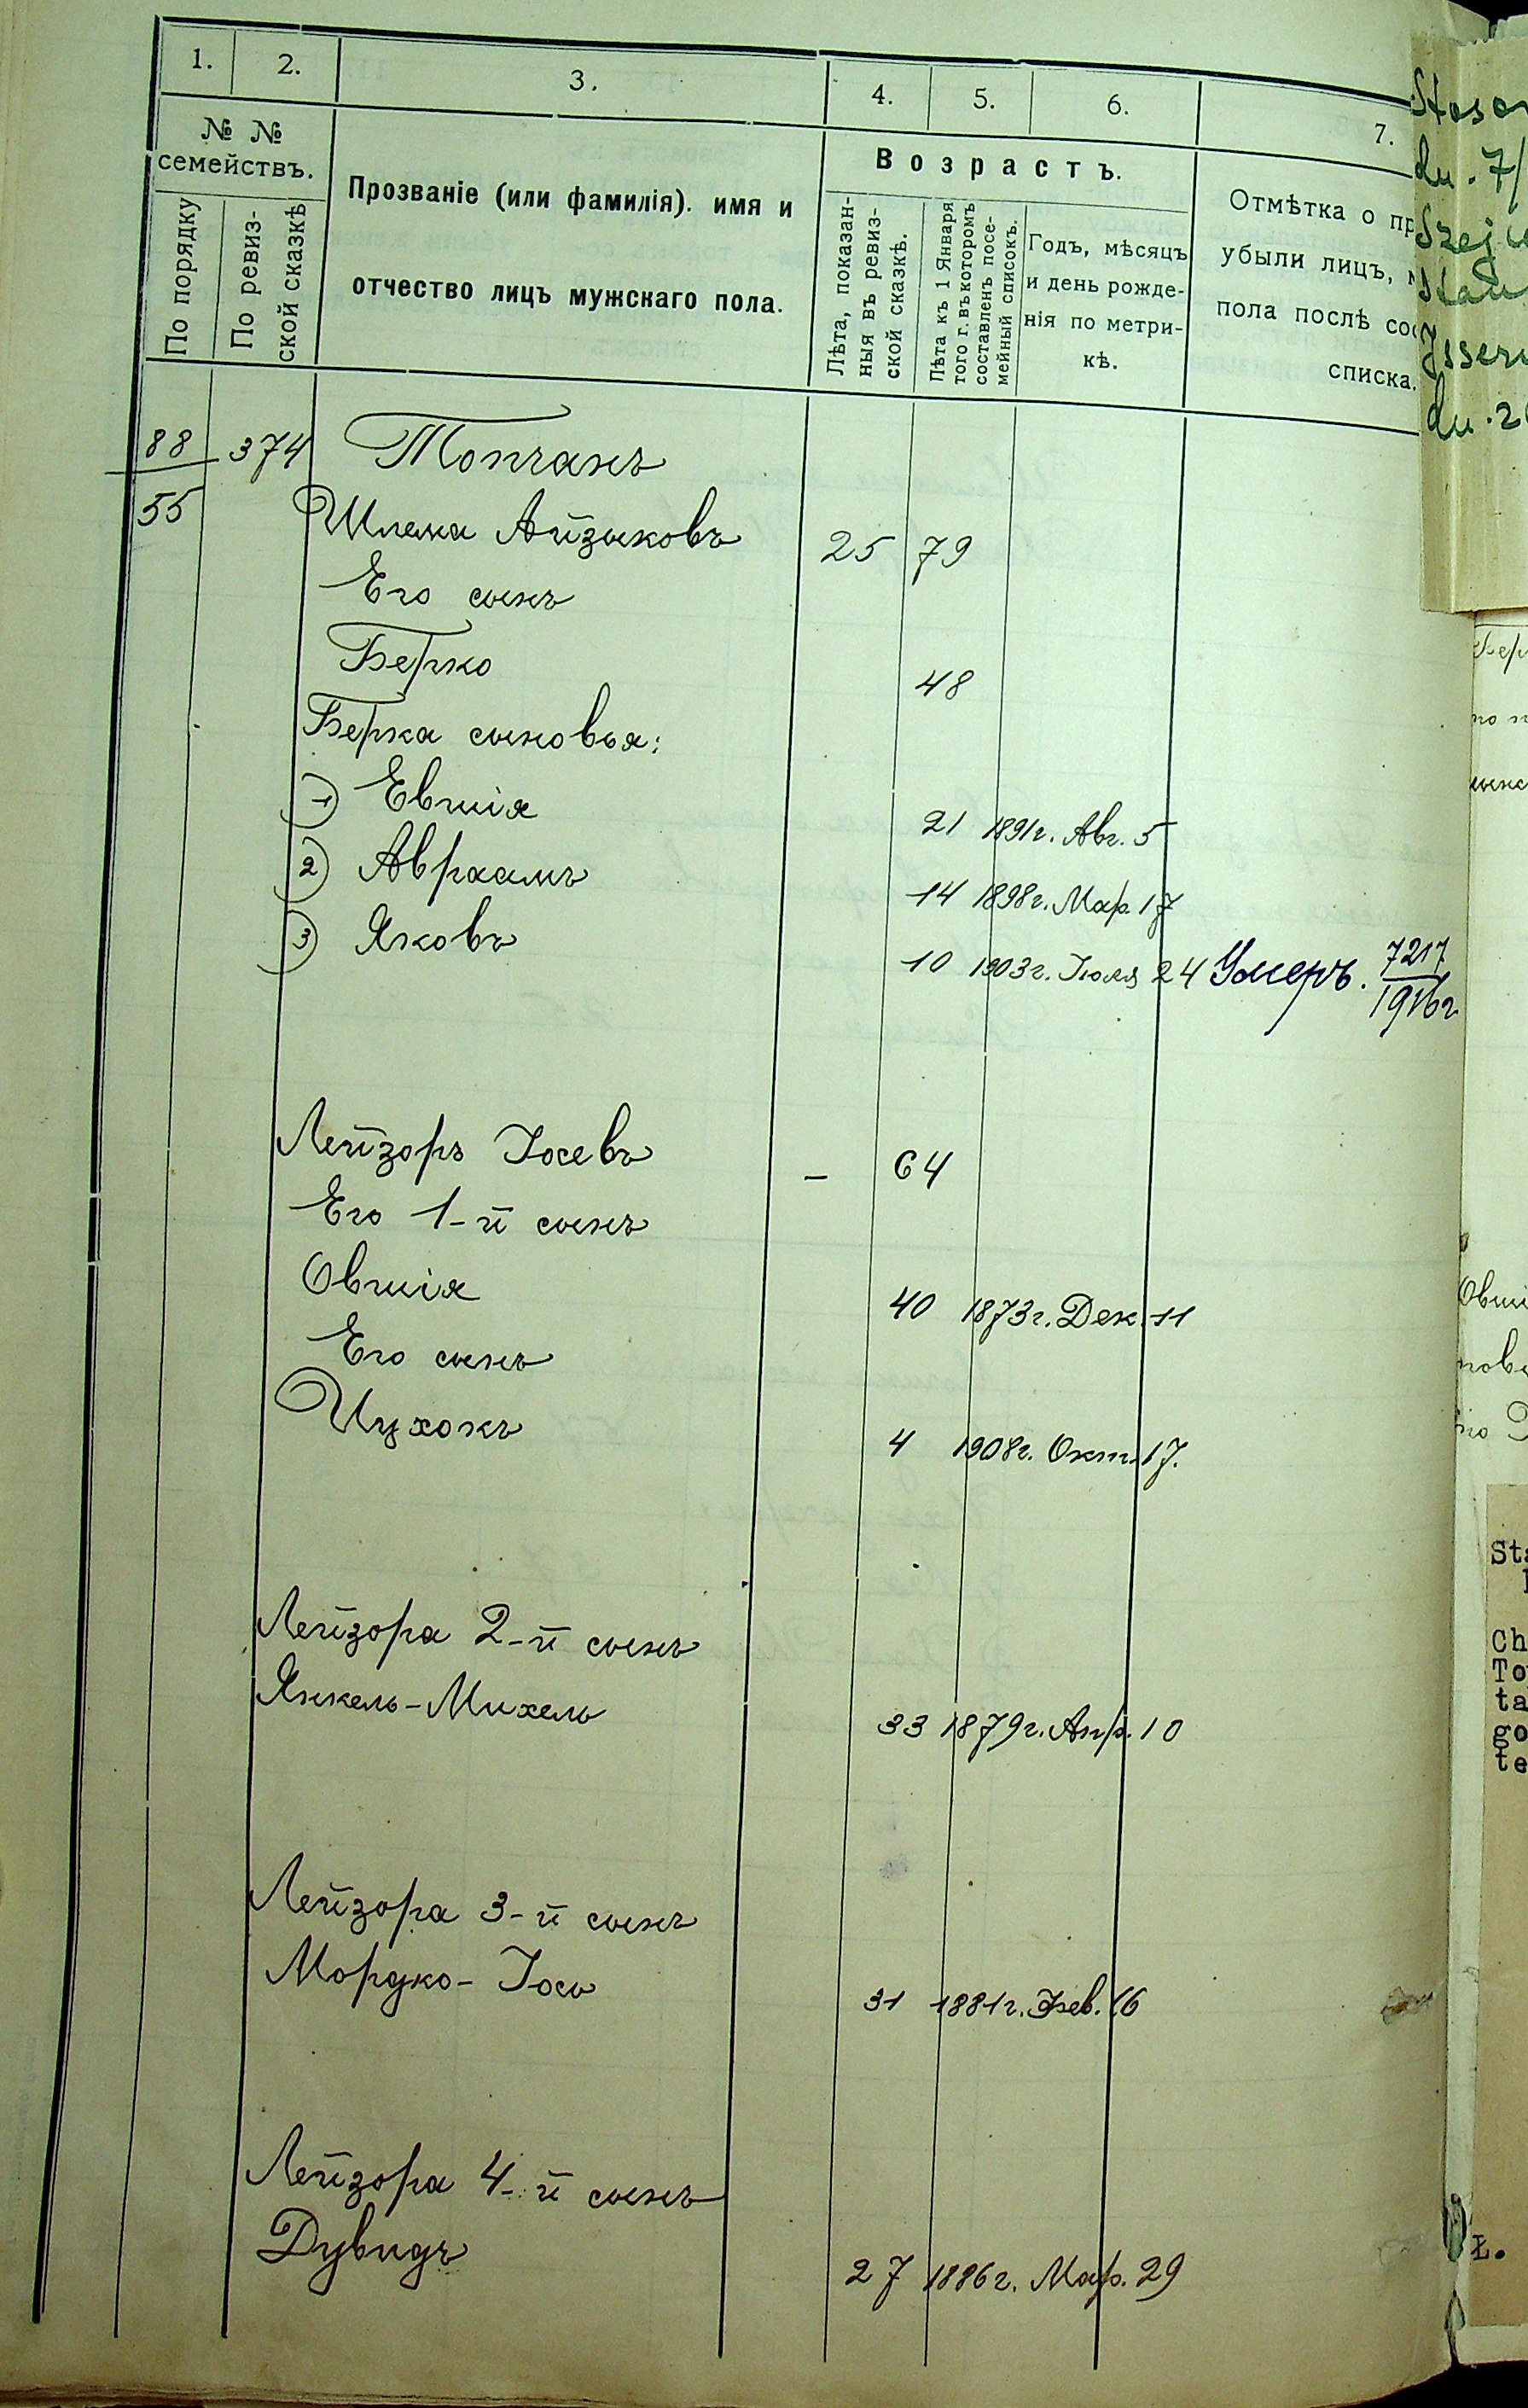 1. 2. 3. 4. 5. 6. 7.
№ №
семействъ.
По порядку
По ревиз-
ской сказкѣ
Прозваніе (или фамилія). имя и
отчество лицъ мужскаго пола.
Возрастъ.
Лѣта, показан-
ныя въ ревиз-
ской сказкѣ.
Лѣта къ 1 Января
того г. въ которомъ
составленъ посе-
мейный списокъ.
Годъ, мѣсяцъ
и день рожде-
нія по метри-
кѣ.
Отмѣтка о пр
убыли лицъ, м
пола послѣ сос
списка.
88 374 Топчанъ
55 Шлема Айзыковъ 25 79
Его сынъ
Берко 48
Берка сыновья:
1) Евшія 21 1891г. Авг. 5
2) Авраамъ 14 1898г. Мар. 17
3) Яковъ 10 1903г. Іюля 24 Умеръ. 7217/1916г
Лейзоръ Іосевъ - 64
Его 1-й сынъ
Овшія 40 1873г. Дек. 11
Его сынъ
Ицхокъ 4 1908г. Окт. 17.
Лейзора 2-й сынъ
Янкель-Михель 33 1879г. Апр. 10
Лейзора 3-й сынъ
Мордко-Іось 31 1881г. Фев. 16
Лейзора 4-й сынъ
Дувидъ 27 1886г. Мар. 29
Stoso
du. 7/
Szej
Stan
Isser
du. 2
Бер
Овші
Sta
Ch
To
ta
go
te
Ł.